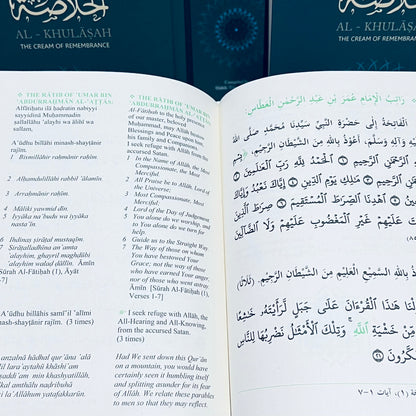 AL - KHULĀṢAH
THE CREAM OF REMEMBRANCE
AL - KHULĀṢAH
THE CREAM OF REMEMBRANCE
❖ THE RĀTIB OF 'UMAR BIN
'ABDURRAḤMĀN AL-'AṬṬĀS:
Alfātiḥatu ilā haḍratin nabiyyi
sayyidinā Muḥammadin
ṣallallāhu 'alayhi wa ālihi wa
sallam,
A'ūdhu billāhi minash-shayṭānir
rajīm.
1 Bismillāhir raḥmānir raḥīm
2 Alḥamdulillāhi rabbil 'ālamīn
3 Arraḥmānir raḥīm
4 Māliki yawmid dīn
5 Iyyāka na'budu wa iyyāka
nasta'īn
6 Ihdinaṣ ṣirāṭal mustaqīm
7 Ṣirāṭalladhīna an'amta
'alayhim, ghayril maghḍūbi
'alayhim walaḍ ḍāllīn. Āmīn
[Sūrah Al-Fātiḥah (1), Āyāt
1-7]
A'ūdhu billāhi samī'il 'alīmi
minash-shayṭānir rajīm. (3 times)
anzalnā hādhal qur'āna 'alā
lil lara'aytahū khāshi'an
ṣaddi'am min khashyatillāh,
lkal amthālu naḍribuhā
❖ THE RĀTIB OF 'UMAR BIN
'ABDURRAḤMĀN AL-'AṬṬĀS:
Al-Fātiḥah to the holy presence
of our master, beloved
Muḥammad, may Allah bestow
Blessings and Peace upon
him and his
I seek refuge with Allah from the
accursed Satan.
1 In the Name of Allah, the Most
Compassionate, the Most
Merciful.
2 All Praise be to Allah, Lord of
the Universe;
3 Most Compassionate, Most
Merciful;
4 Lord of the Day of Judgement
5 You alone do we worship, and
to You alone do we turn for
help.
6 Guide us to the Straight Way
7 The Way of those on whom
You have bestowed Your
Grace; not the way of those
who have earned Your anger,
nor of those who went astray.
Āmīn [Sūrah Al-Fātiḥah (1),
Verses 1-7]
I seek refuge with Allah, the
All-Hearing and All-Knowing,
from the accursed Satan.
(3 times)
Had We sent down this Qur'ān
on a mountain, you would have
certainly seen it humbling itself
and splitting asunder for fear
of Allah. We relate these parables
to men so that they may reflect.
رَاتِبُ الْإِمَامِ عُمَرَ بْنِ عَبْدِ الرَّحْمٰنِ الْعَطَّاسِ:
الْفَاتِحَةُ إِلَى حَضْرَةِ النَّبِيِّ سَيِّدِنَا مُحَمَّدٍ صَلَّى اللهُ
أَعُوْذُ بِاللهِ مِنَ الشَّيْطَانِ الرَّجِيْمِ
الرَّحْمٰنِ الرَّحِيْمِ ۝ الْحَمْدُ لِلّٰهِ رَبِّ الْعَالَمِيْنَ ۝
الرَّحِيْمِ ۝ مَالِكِ يَوْمِ الدِّيْنِ ۝ إِيَّاكَ نَعْبُدُ وَإِيَّاكَ
۝ اهْدِنَا الصِّرَاطَ الْمُسْتَقِيْمَ ۝ صِرَاطَ الَّذِيْنَ
عَلَيْهِمْ غَيْرِ الْمَغْضُوْبِ عَلَيْهِمْ وَلَا الضَّالِّيْنَ ۝
بِاللهِ السَّمِيْعِ الْعَلِيْمِ مِنَ الشَّيْطَانِ الرَّجِيْمِ
هٰذَا الْقُرْءَانَ عَلَىٰ جَبَلٍ لَّرَأَيْتَهُۥ خٰشِعًا
مِّنْ خَشْيَةِ اللّٰهِ ۚ وَتِلْكَ الْأَمْثٰلُ نَضْرِبُهَا لِلنَّاسِ
(١)، آيات ١-٧